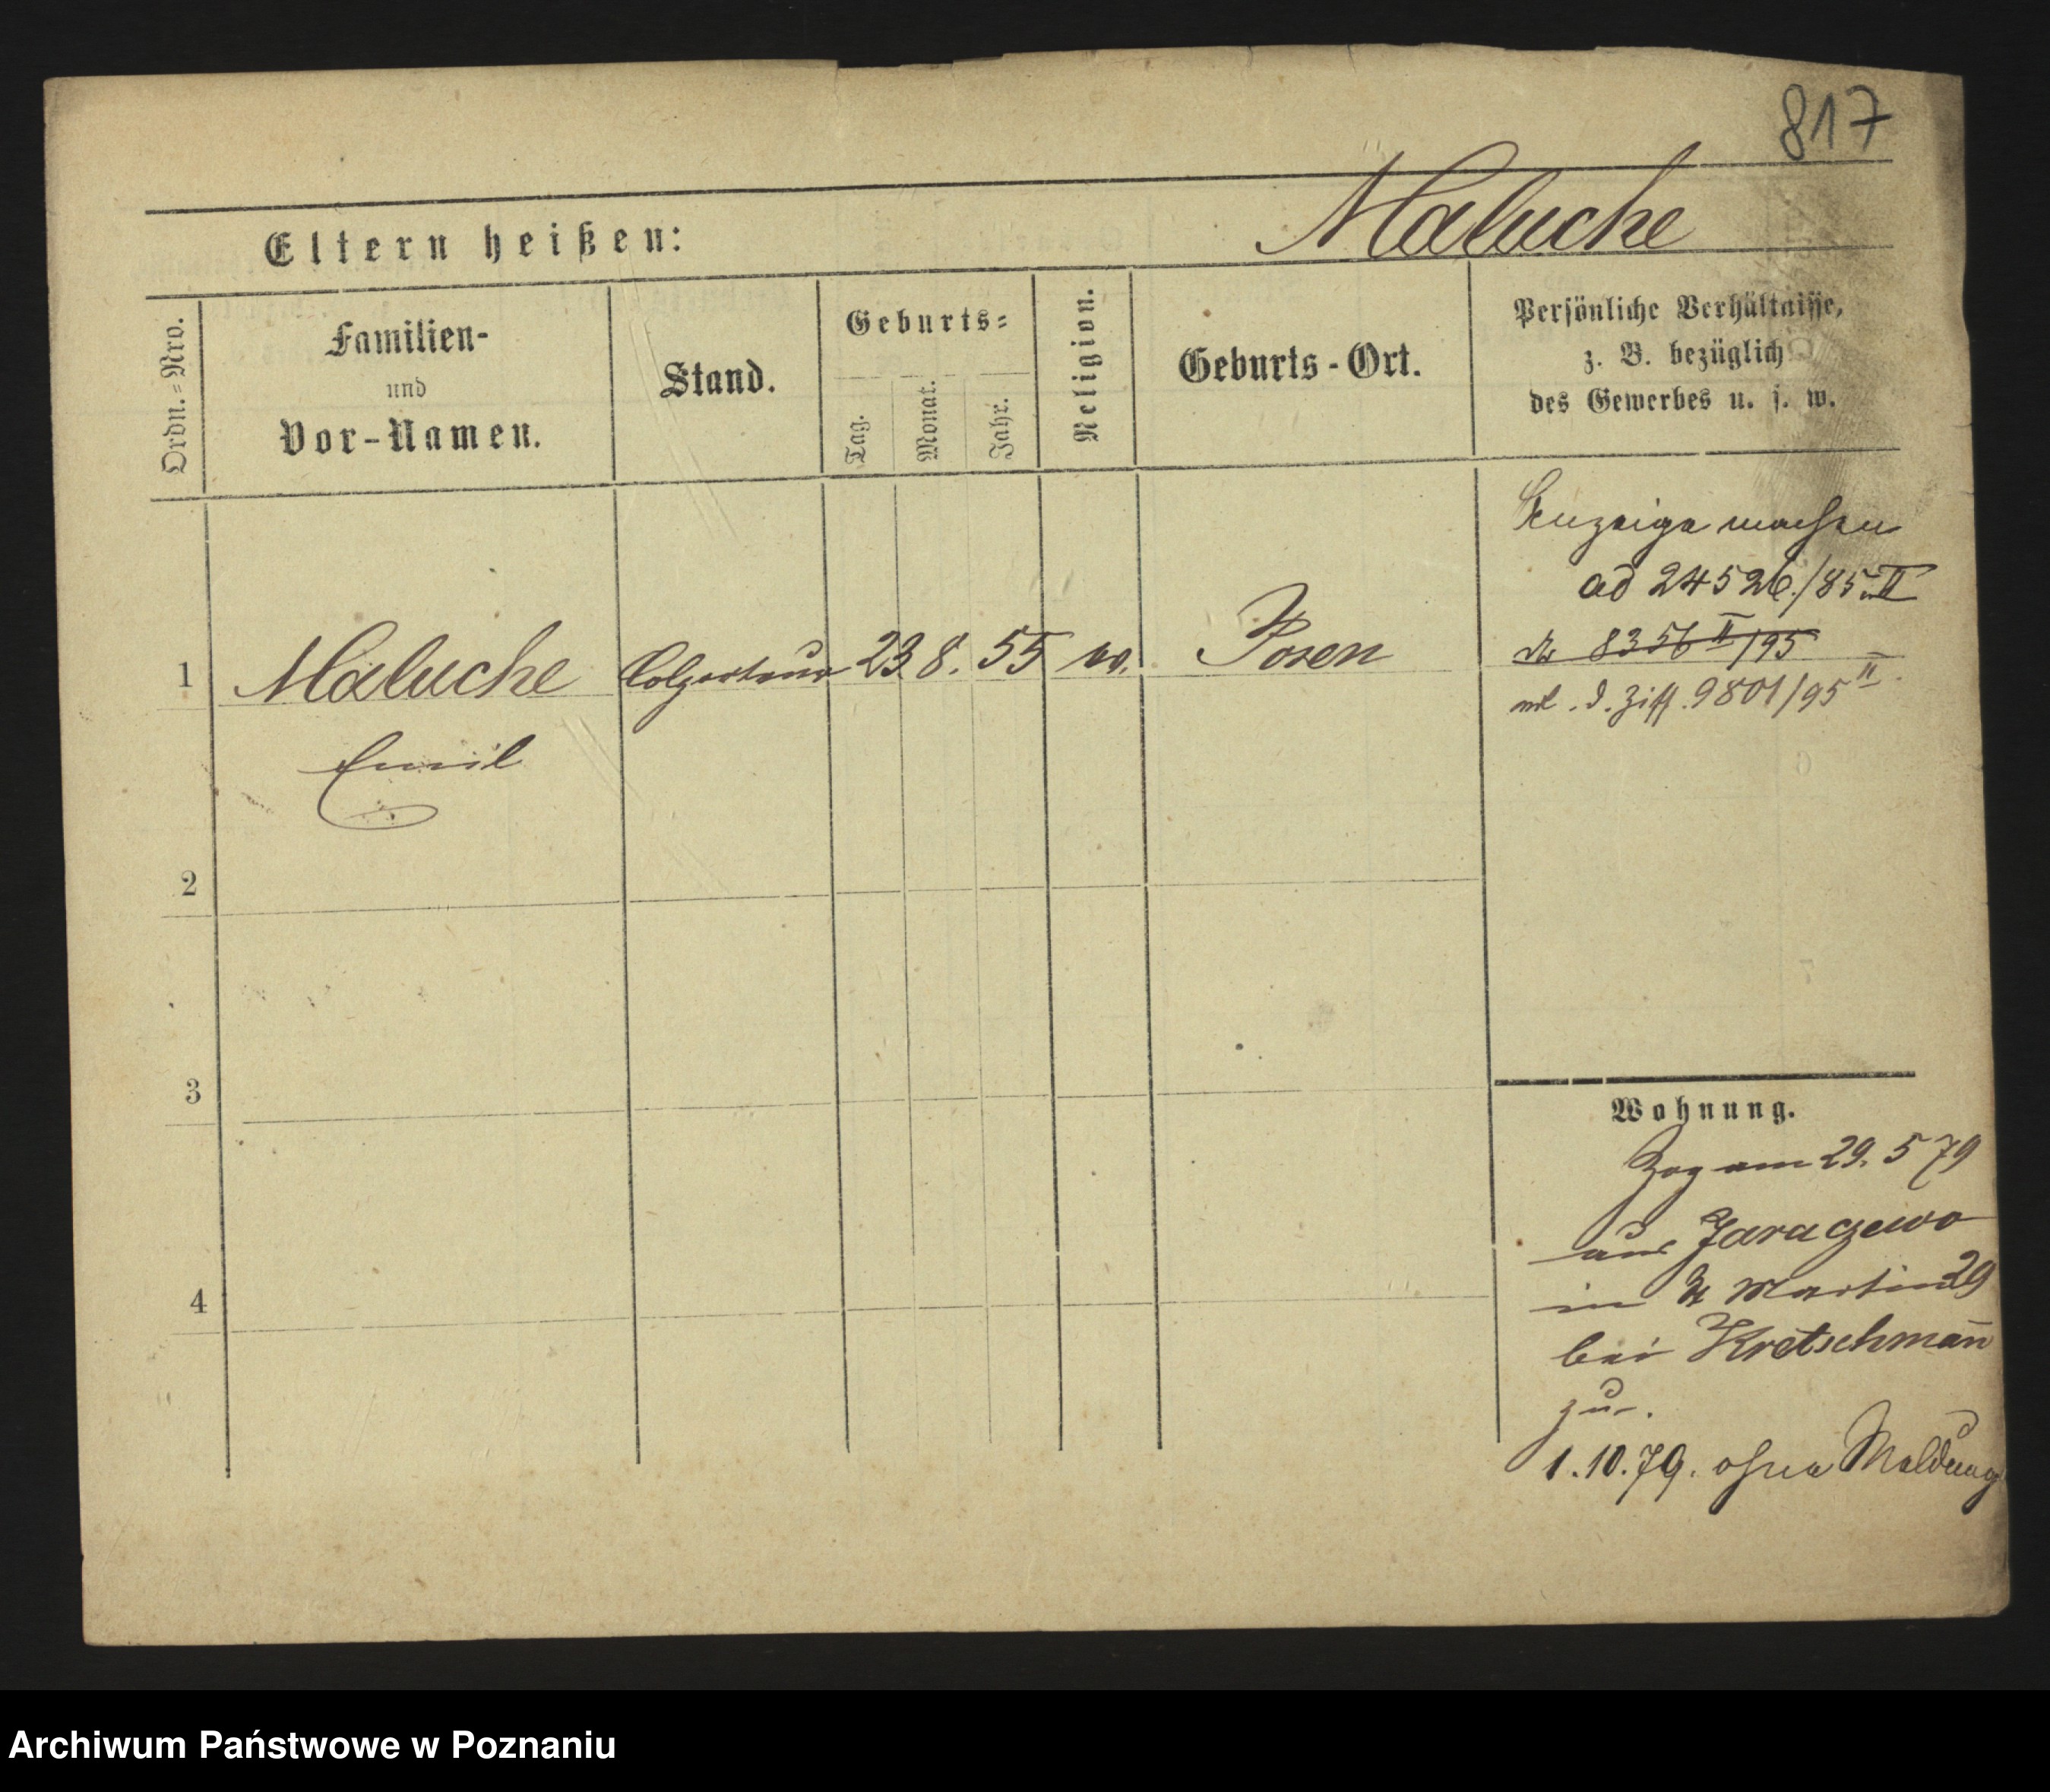 817
Eltern heißen:
Maluche
Ordn.-Nro.
Familien-
und
Vor-Namen.
Stand.
Geburts-
Tag.
Monat.
Jahr.
Religion.
Geburts-Ort.
Persönliche Verhältnisse,
z. B. bezüglich
des Gewerbes u. s. w.
Anzeige machen
ad 24526./85. II
8356 II/95
d. Ziff. 9801/95 II
1
Maluche
Colporteur
23 8. 55
Posen
Emil
2
3
4
Wohnung.
Zog am 29. 5 79
aus Jaraczewo
in St Martin 29
bei Kretschmann
zu.
1.10.79. ohne Meldung
Archiwum Państwowe w Poznaniu